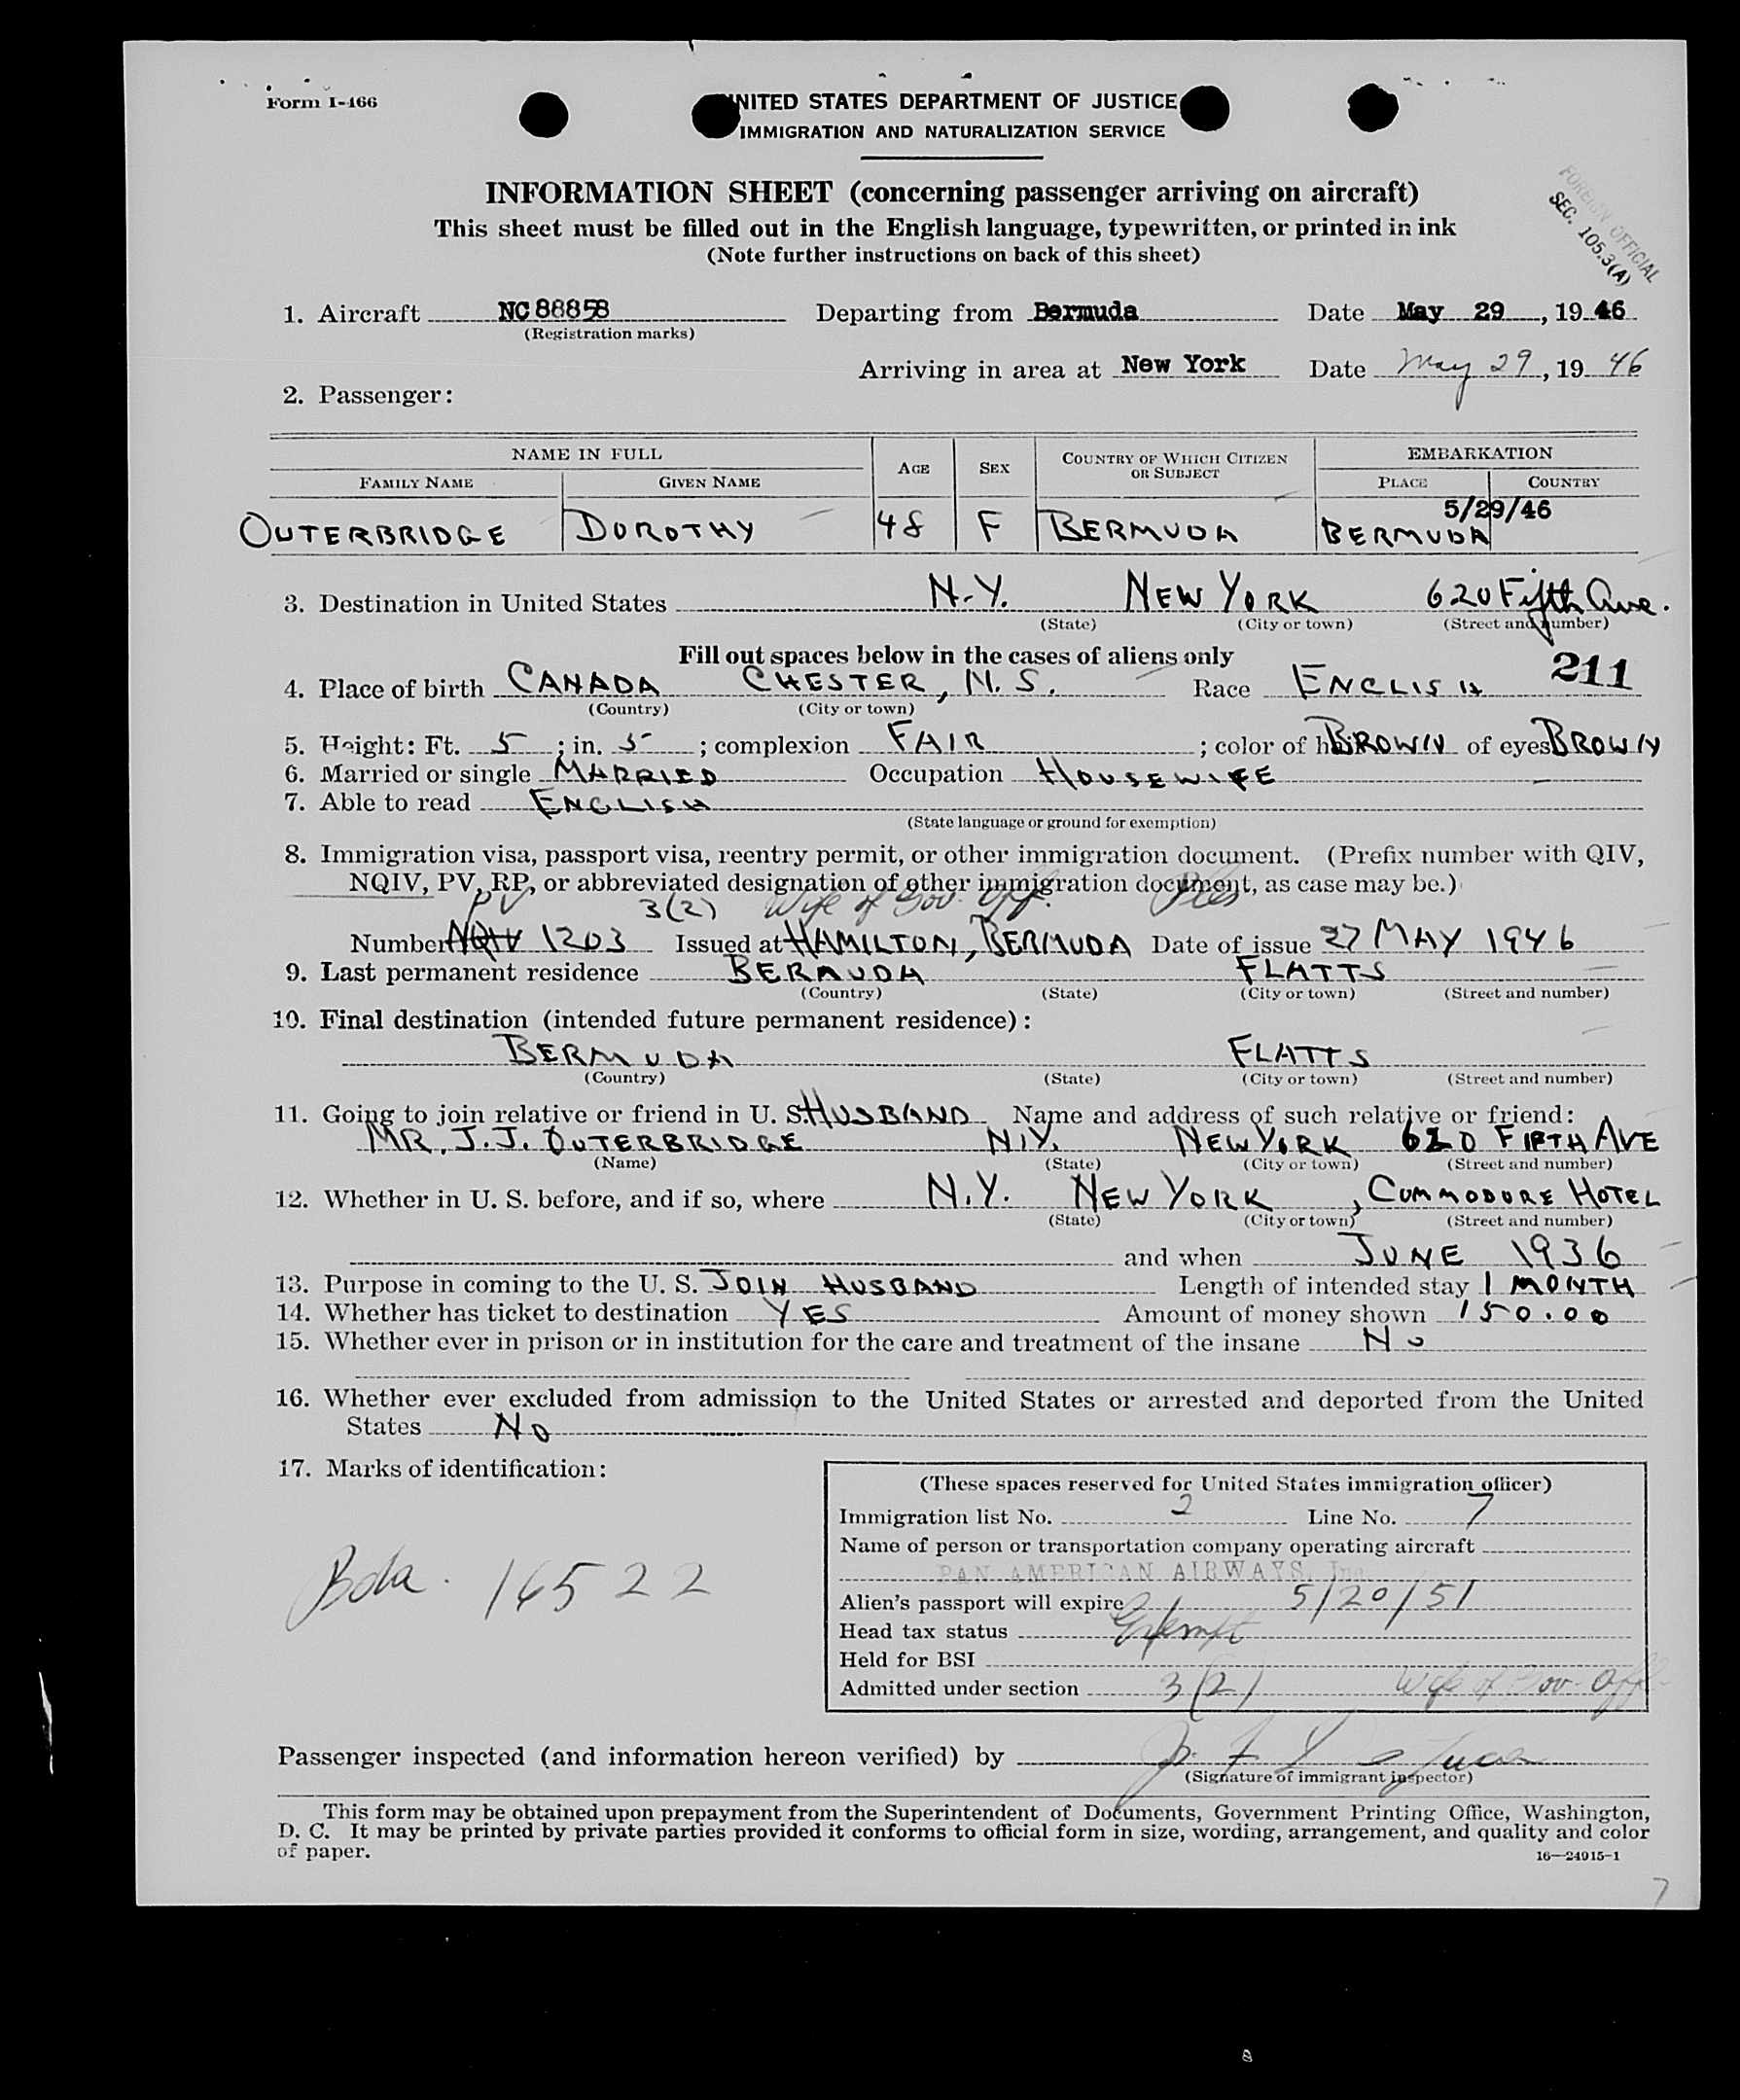 Form I-466
UNITED STATES DEPARTMENT OF JUSTICE
IMMIGRATION AND NATURALIZATION SERVICE
INFORMATION SHEET (concerning passenger arriving on aircraft)
This sheet must be filled out in the English language, typewritten, or printed in ink
(Note further instructions on back of this sheet)
FOREIGN OFFICIAL
SEC. 105.3(A)
1. Aircraft NC 88858 Departing from Bermuda Date May 29, 1946
(Registration marks)
Arriving in area at New York Date May 29, 1946
2. Passenger:
NAME IN FULL AGE SEX COUNTRY OF WHICH CITIZEN OR SUBJECT EMBARKATION
FAMILY NAME GIVEN NAME PLACE COUNTRY
5/29/46
OUTERBRIDGE DOROTHY 48 F BERMUDA BERMUDA
3. Destination in United States N.Y. NEW YORK 620 Fifth Ave.
(State) (City or town) (Street and number)
Fill out spaces below in the cases of aliens only
211
4. Place of birth CANADA CHESTER, N.S. Race ENGLISH
(Country) (City or town)
5. Height: Ft. 5; in. 5; complexion FAIR; color of hair BROWN of eyes BROWN
6. Married or single MARRIED Occupation HOUSEWIFE
7. Able to read ENGLISH
(State language or ground for exemption)
8. Immigration visa, passport visa, reentry permit, or other immigration document. (Prefix number with QIV,
NQIV, PV, RP, or abbreviated designation of other immigration document, as case may be.)
PV 3(2) Wife of Gov. Off.
Number NQIV 1203 Issued at HAMILTON, BERMUDA Date of issue 27 MAY 1946
9. Last permanent residence BERMUDA FLATTS
(Country) (State) (City or town) (Street and number)
10. Final destination (intended future permanent residence):
BERMUDA FLATTS
(Country) (State) (City or town) (Street and number)
11. Going to join relative or friend in U. S. HUSBAND Name and address of such relative or friend:
MR. J.J. OUTERBRIDGE N.Y. NEW YORK 620 FIFTH AVE
(Name) (State) (City or town) (Street and number)
12. Whether in U. S. before, and if so, where N.Y. NEW YORK, COMMODORE HOTEL
(State) (City or town) (Street and number)
and when JUNE 1936
13. Purpose in coming to the U. S. JOIN HUSBAND Length of intended stay 1 MONTH
14. Whether has ticket to destination YES Amount of money shown 150.00
15. Whether ever in prison or in institution for the care and treatment of the insane No
16. Whether ever excluded from admission to the United States or arrested and deported from the United
States No
17. Marks of identification:
Bda. 16522
(These spaces reserved for United States immigration officer)
Immigration list No. 2 Line No. 7
Name of person or transportation company operating aircraft
PAN AMERICAN AIRWAYS, Inc.
Alien's passport will expire 5/20/51
Head tax status Exempt
Held for BSI
Admitted under section 3(2) Wife of Gov. Off.
Passenger inspected (and information hereon verified) by
(Signature of immigrant inspector)
This form may be obtained upon prepayment from the Superintendent of Documents, Government Printing Office, Washington,
D. C. It may be printed by private parties provided it conforms to official form in size, wording, arrangement, and quality and color
of paper.
16—24915-1
7